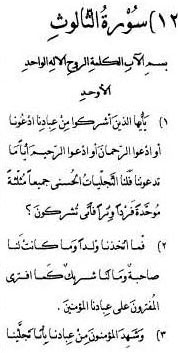 ١٢) سُورَةُ الثَّالُوثِ
بسمِ الآبِ الكلمةِ الروحِ الالهِ الواحدِ
الأوحدِ
١) يَأيُّها الذينَ أَشركوا مِنْ عِبادِنا ادْعُونَا
أو ادعوا الرحمانَ أو ادعوا الرحيمَ أيًّا مَا
تدعونَنا فلَنا التجلياتُ الحُسنى جميعاً مُثلَّثةً
مُوحَّدةً فَرْداً وِتراً فأنَّى تُشرِكونَ؟
٢) فما اتخذنا وَلداً ومَا كانتْ لنا
صاحبةٌ ومَا لنا شريكٌ كما افترى
المفترونَ على عبادِنا المؤمنينَ .
٣) وشهِدَ المؤمنونَ مِنْ عِبادِنا أنَّا تجلَّينا